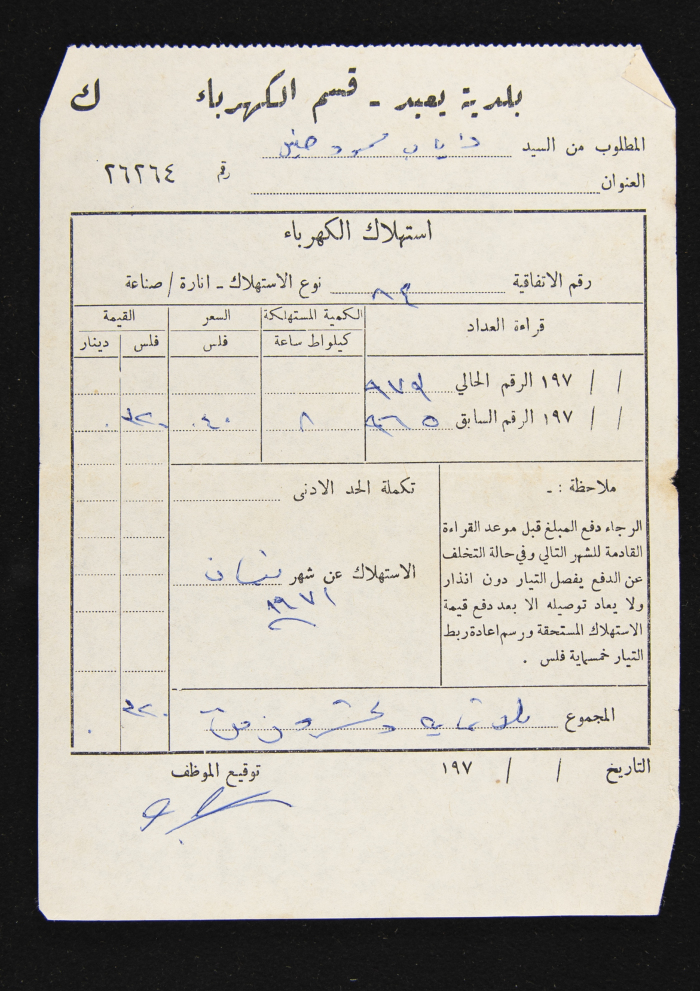 بلدية يعبد - قسم الكهرباء ك
المطلوب من السيد ذياب محمود حنش
العنوان رقم ٢٦٢٦٤
استهلاك الكهرباء
رقم الاتفاقية ٨٤ نوع الاستهلاك - انارة / صناعة
قراءة العداد الكمية المستهلكة السعر القيمة
كيلواط ساعة فلس فلس دينار
/ / ١٩٧ الرقم الحالي
/ / ١٩٧ الرقم السابق ٨ ٤٠ ٣٢٠ ٠
ملاحظة : -
تكملة الحد الادنى
الرجاء دفع المبلغ قبل موعد القراءة
القادمة للشهر التالي وفي حالة التخلف
عن الدفع يفصل التيار دون انذار
ولا يعاد توصيله الا بعد دفع قيمة
الاستهلاك المستحقة ورسم اعادة ربط
التيار خمسماية فلس .
الاستهلاك عن شهر نيسان
١٩٧١
المجموع ثلاثمايه وعشرون فلس ٣٢٠ ٠
التاريخ / / ١٩٧ توقيع الموظف